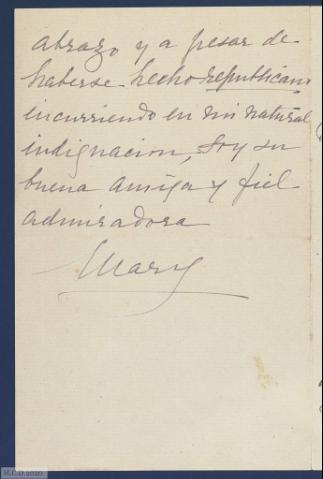 abrazo y a pesar de
haberse hecho republicano
incurriendo en mi natural
indignacion, soy su
buena amiga y fiel
admiradora
Mary
M.C.D. 2020